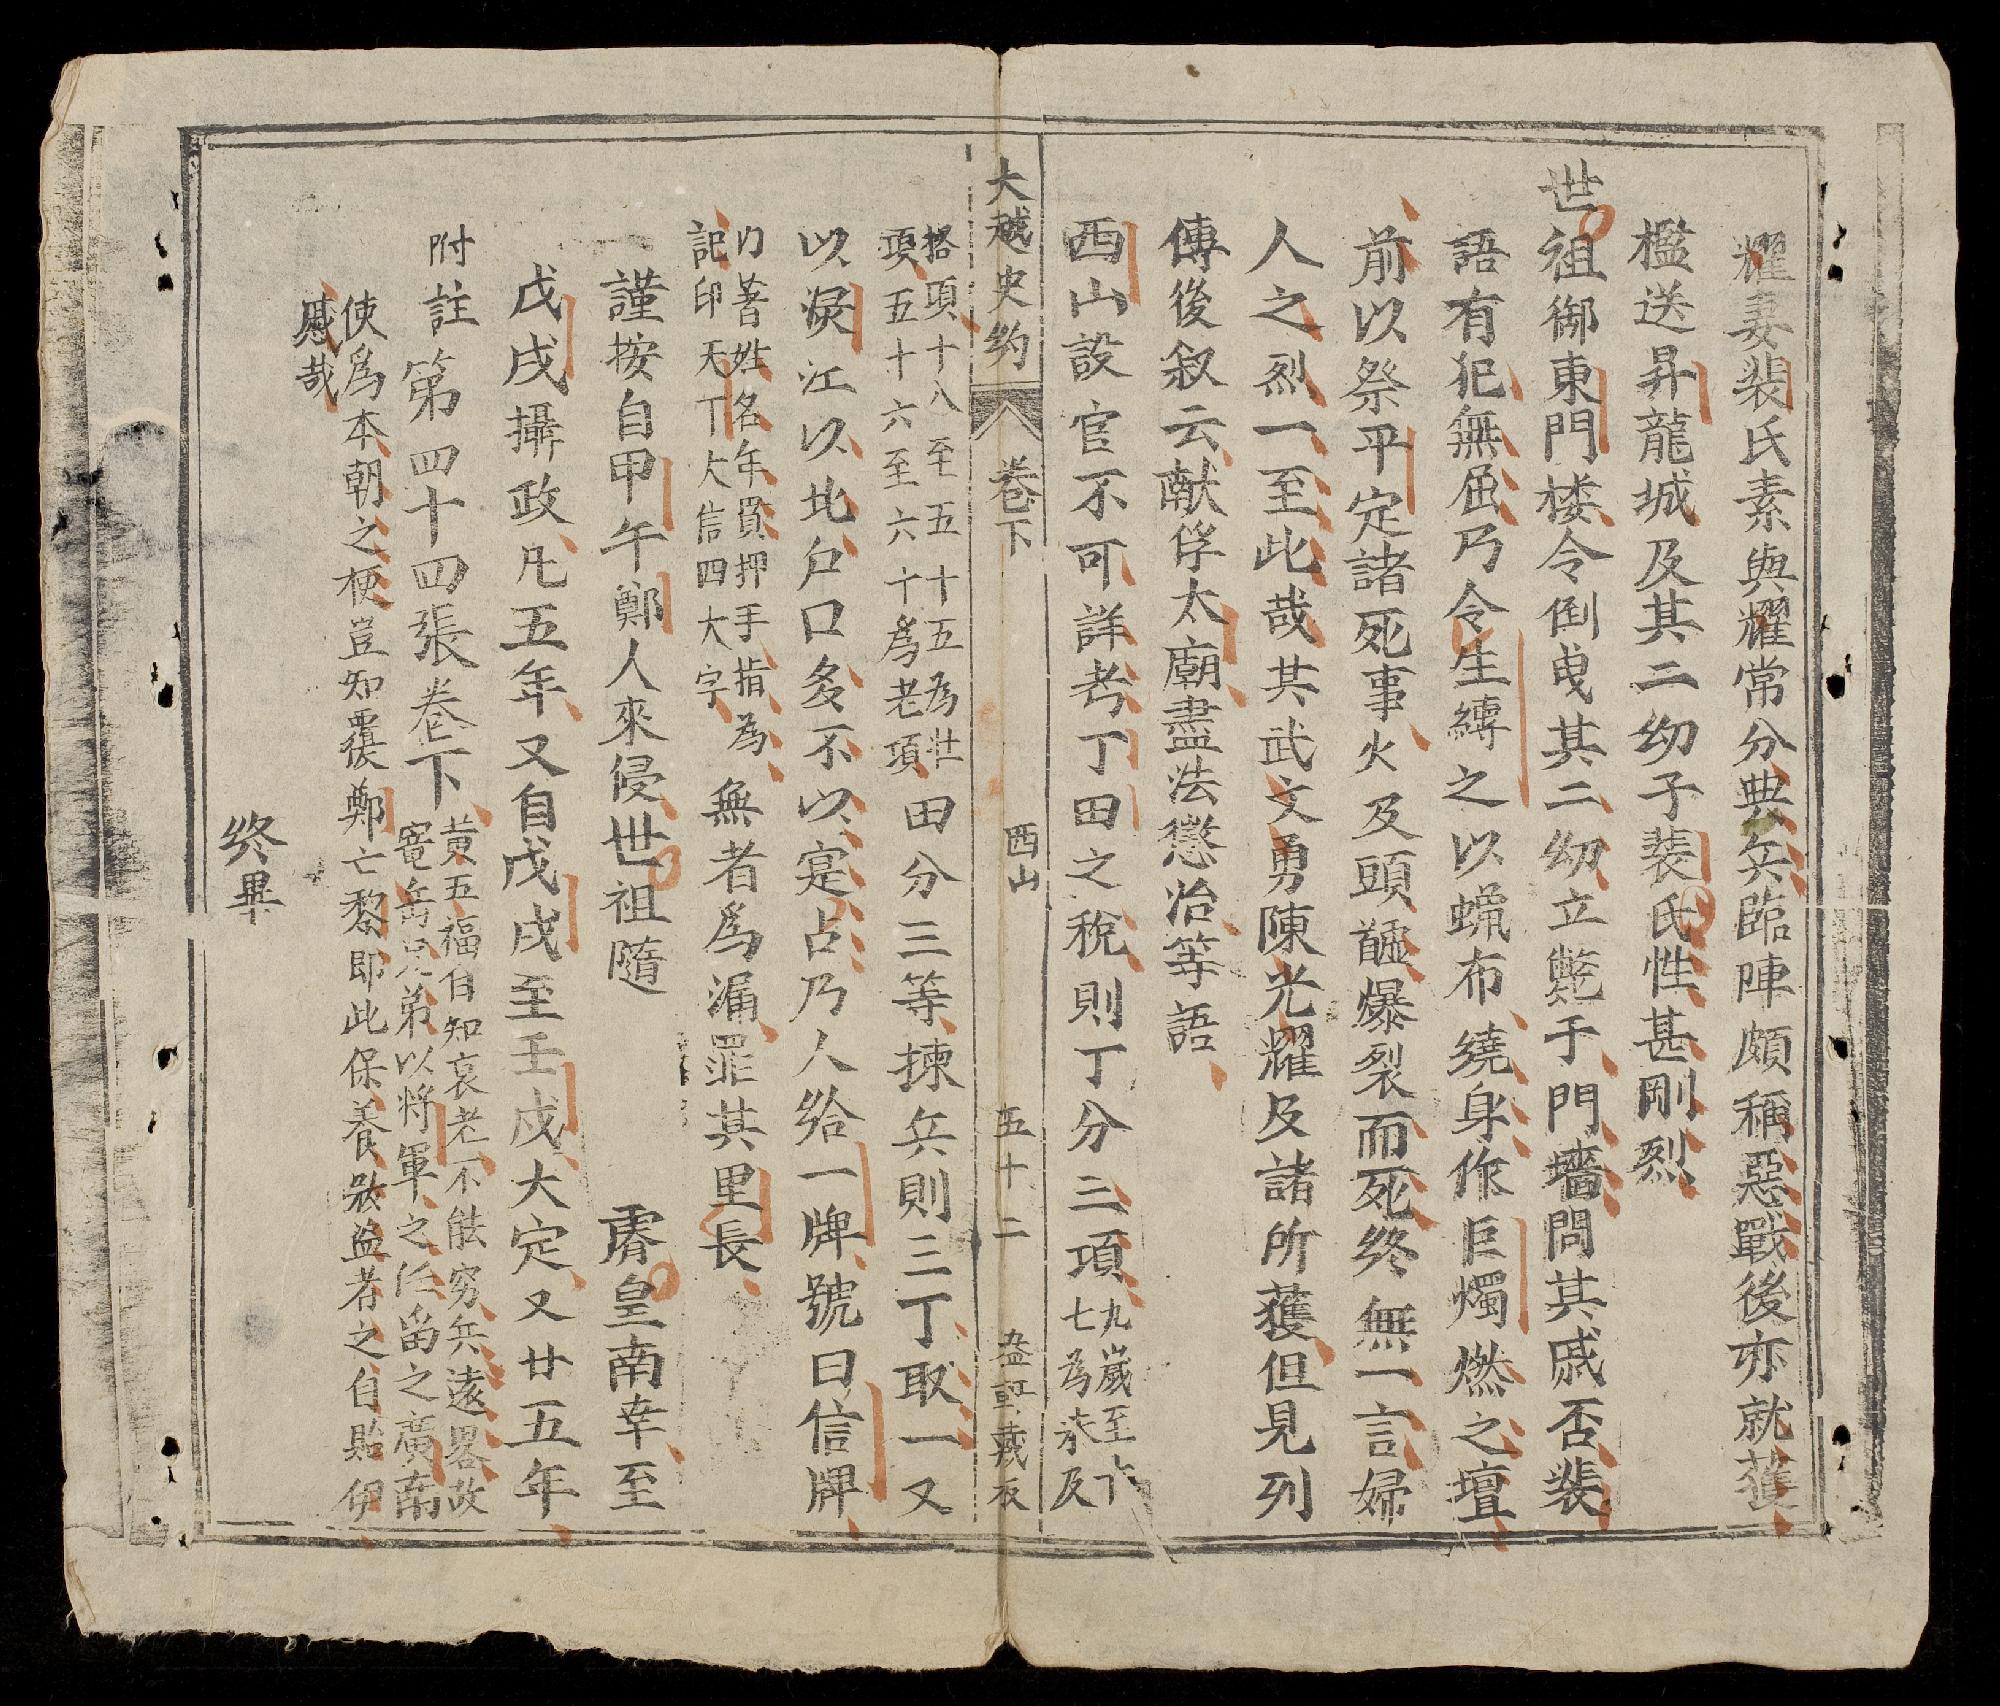 耀妻裴氏素與耀常分典兵臨陣頗稱惡戰後亦就獲
檻送昇龍城及其二幼子裴氏性甚剛烈
世祖御東門楼令倒曳其二幼立斃于門墻問其戚否裴
語有犯無屈乃令生縛之以蝋布繞身作巨燭燃之壇
前以祭平定諸死事火及頭髗爆裂而死終無一言婦
人之烈一至此哉其武文勇陳光耀及諸所獲但見列
傳後叙云献俘太廟盡法懲治等語
西山設官不可詳考丁田之稅則丁分三項九歲至十
七為未及
大越史約 卷下 西山 五十二
挌項十八至五十五為壮
項五十六至六十為老項田分三等揀兵則三丁取一又
以淚江以北户口多不以寔占乃人給一牌號曰信牌
内著姓名年貫押手指為
記印天下大信四大字無者為漏罪其里長
謹按自甲午鄭人來侵世祖隨 睿皇南幸至
戊戌攝政凡五年又自戊戌至壬戌大定又廿五年
附註第四十四張卷下黃五福自知衰老不能穷兵遠畧故
竜岳兄弟以將軍之任畄之廣南
使為本朝之梗豈知覆後鄭亡黎即此保養者之自貽伊
慼哉
終畢